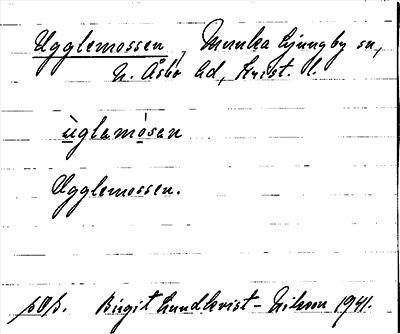 Ugglemossen, Munka Ljungby sn,
N. Åsbo hd, Krist. l.
ùglamòsan
Ugglemossen.
pOp. Birgit Lundkvist-Nilsson 1941.